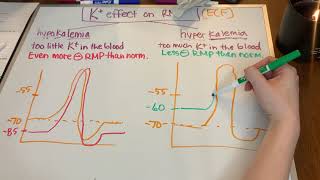 K+ effect on RMP (ECF)
hypokalemia
too little K+ in the blood
Even more ⊖ RMP than norm.
-55
-70
-85
hyperkalemia
too much K+ in the blood
Less ⊖ RMP than norm.
-55
-60
-70